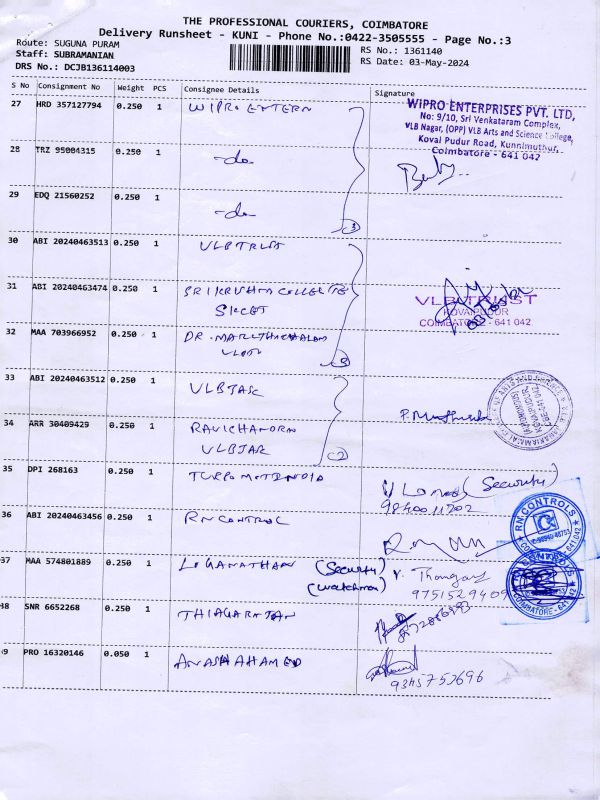 THE PROFESSIONAL COURIERS, COIMBATORE
Delivery Runsheet - KUNI - Phone No.:0422-3505555 - Page No.:3
Route: SUGUNA PURAM
Staff: SUBRAMANIAN
DRS No.: DCJB136114003
RS No.: 1361140
RS Date: 03-May-2024
S No Consignment No Weight PCS Consignee Details Signature
27 HRD 357127794 0.250 1 WIPRO EXTERN
WIPRO ENTERPRISES PVT. LTD,
No: 9/10, Sri Venkataram Complex,
VLB Nagar, (OPP) VLB Arts and Science College,
Kovai Pudur Road, Kunnimuthur,
Coimbatore - 641 042
28 TRZ 95004315 0.250 1 -do-
29 EDQ 21560252 0.250 1 -do-
3
30 ABI 20240463513 0.250 1 VLB TRUST
31 ABI 20240463474 0.250 1 SRI KRISHNA COLLEGE
SKCET
VLB TRUST
KOVAIPUDUR
COIMBATORE - 641 042
32 MAA 703966952 0.250 1 DR. MARUTHACHALAM
33 ABI 20240463512 0.250 1 VLBJASC
34 ARR 30409429 0.250 1 RAVICHANDRN
VLBJAR
2
35 DPI 268163 0.250 1 TURBO MOT INDIA
(Security)
9840011202
36 ABI 20240463456 0.250 1 RN CONTROL
RN CONTROLS
COIMBATORE - 641 042
37 MAA 574801889 0.250 1 LOGANATHAN (Security)
(watchman)
9751529409
COIMBATORE - 641 042
38 SNR 6652268 0.250 1 THIAGARAJAN
39 PRO 16320146 0.050 1 ANASHAHAMED
9345753696